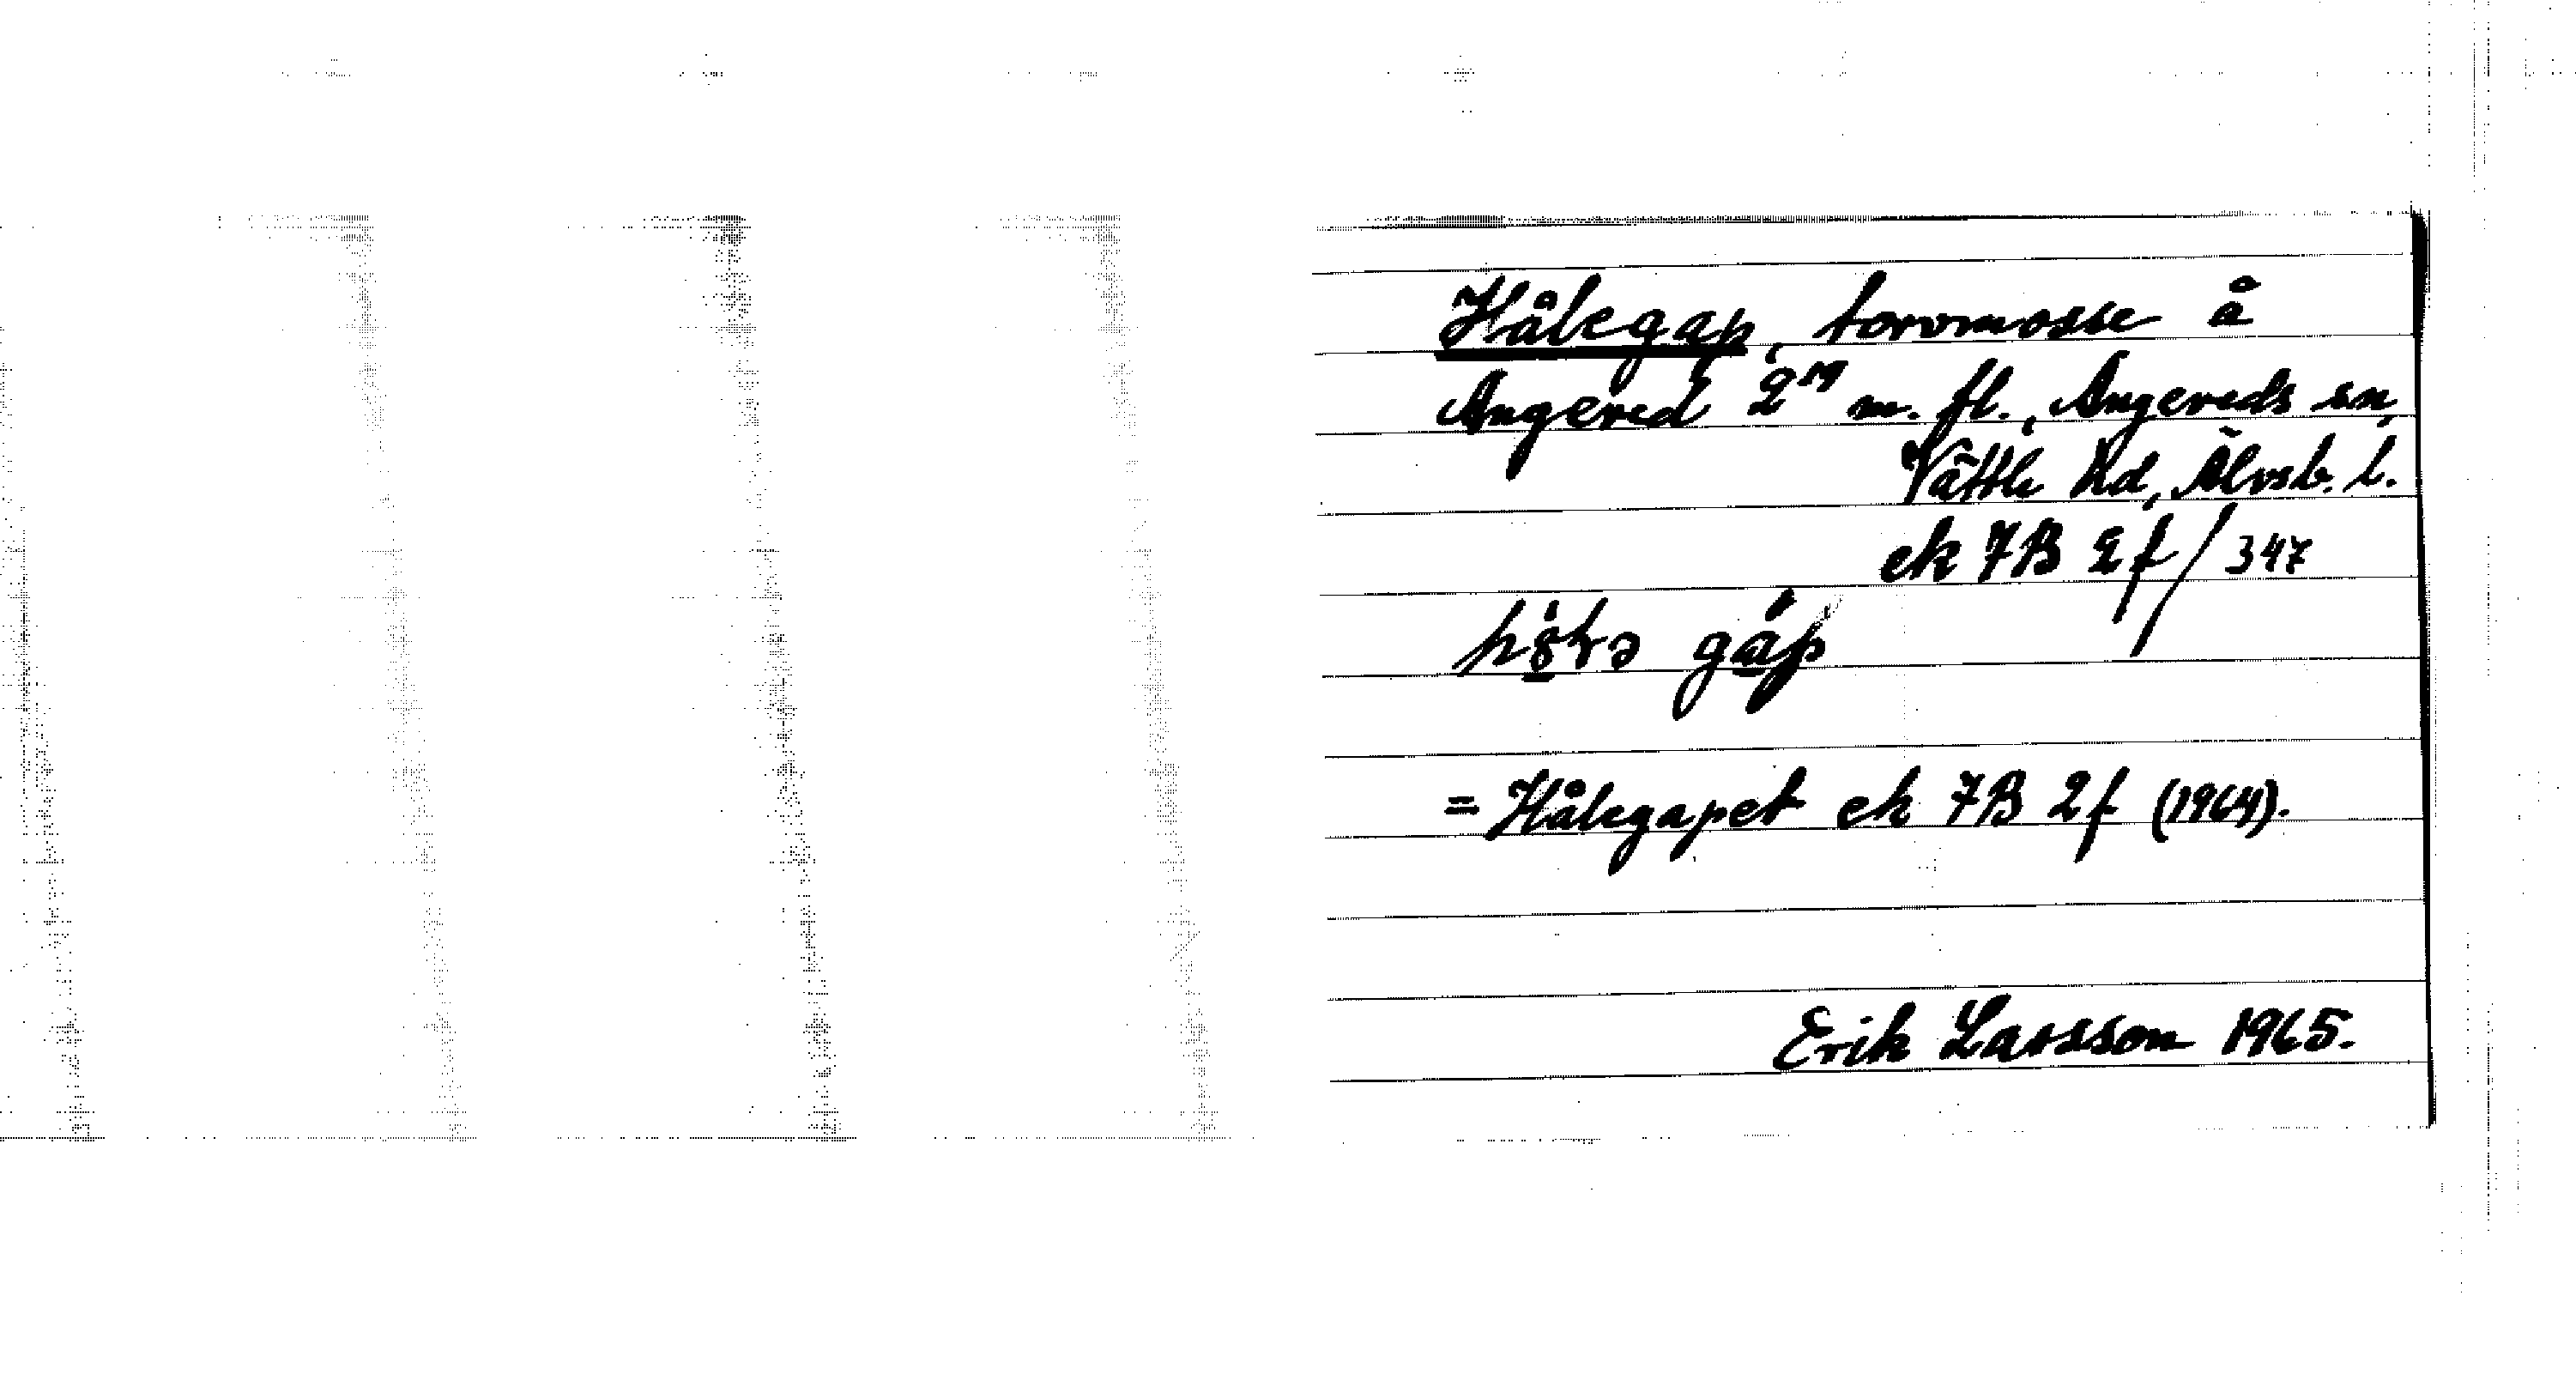 Hålegap, torvmosse å
Angered 2ᴹ m. fl., Angereds sn,
Vättle hd, Älvsb. l.
ek 7B 2f/347
gáp
= Hålegapet ek 7B 2f (1964).
Erik Larsson 1965.